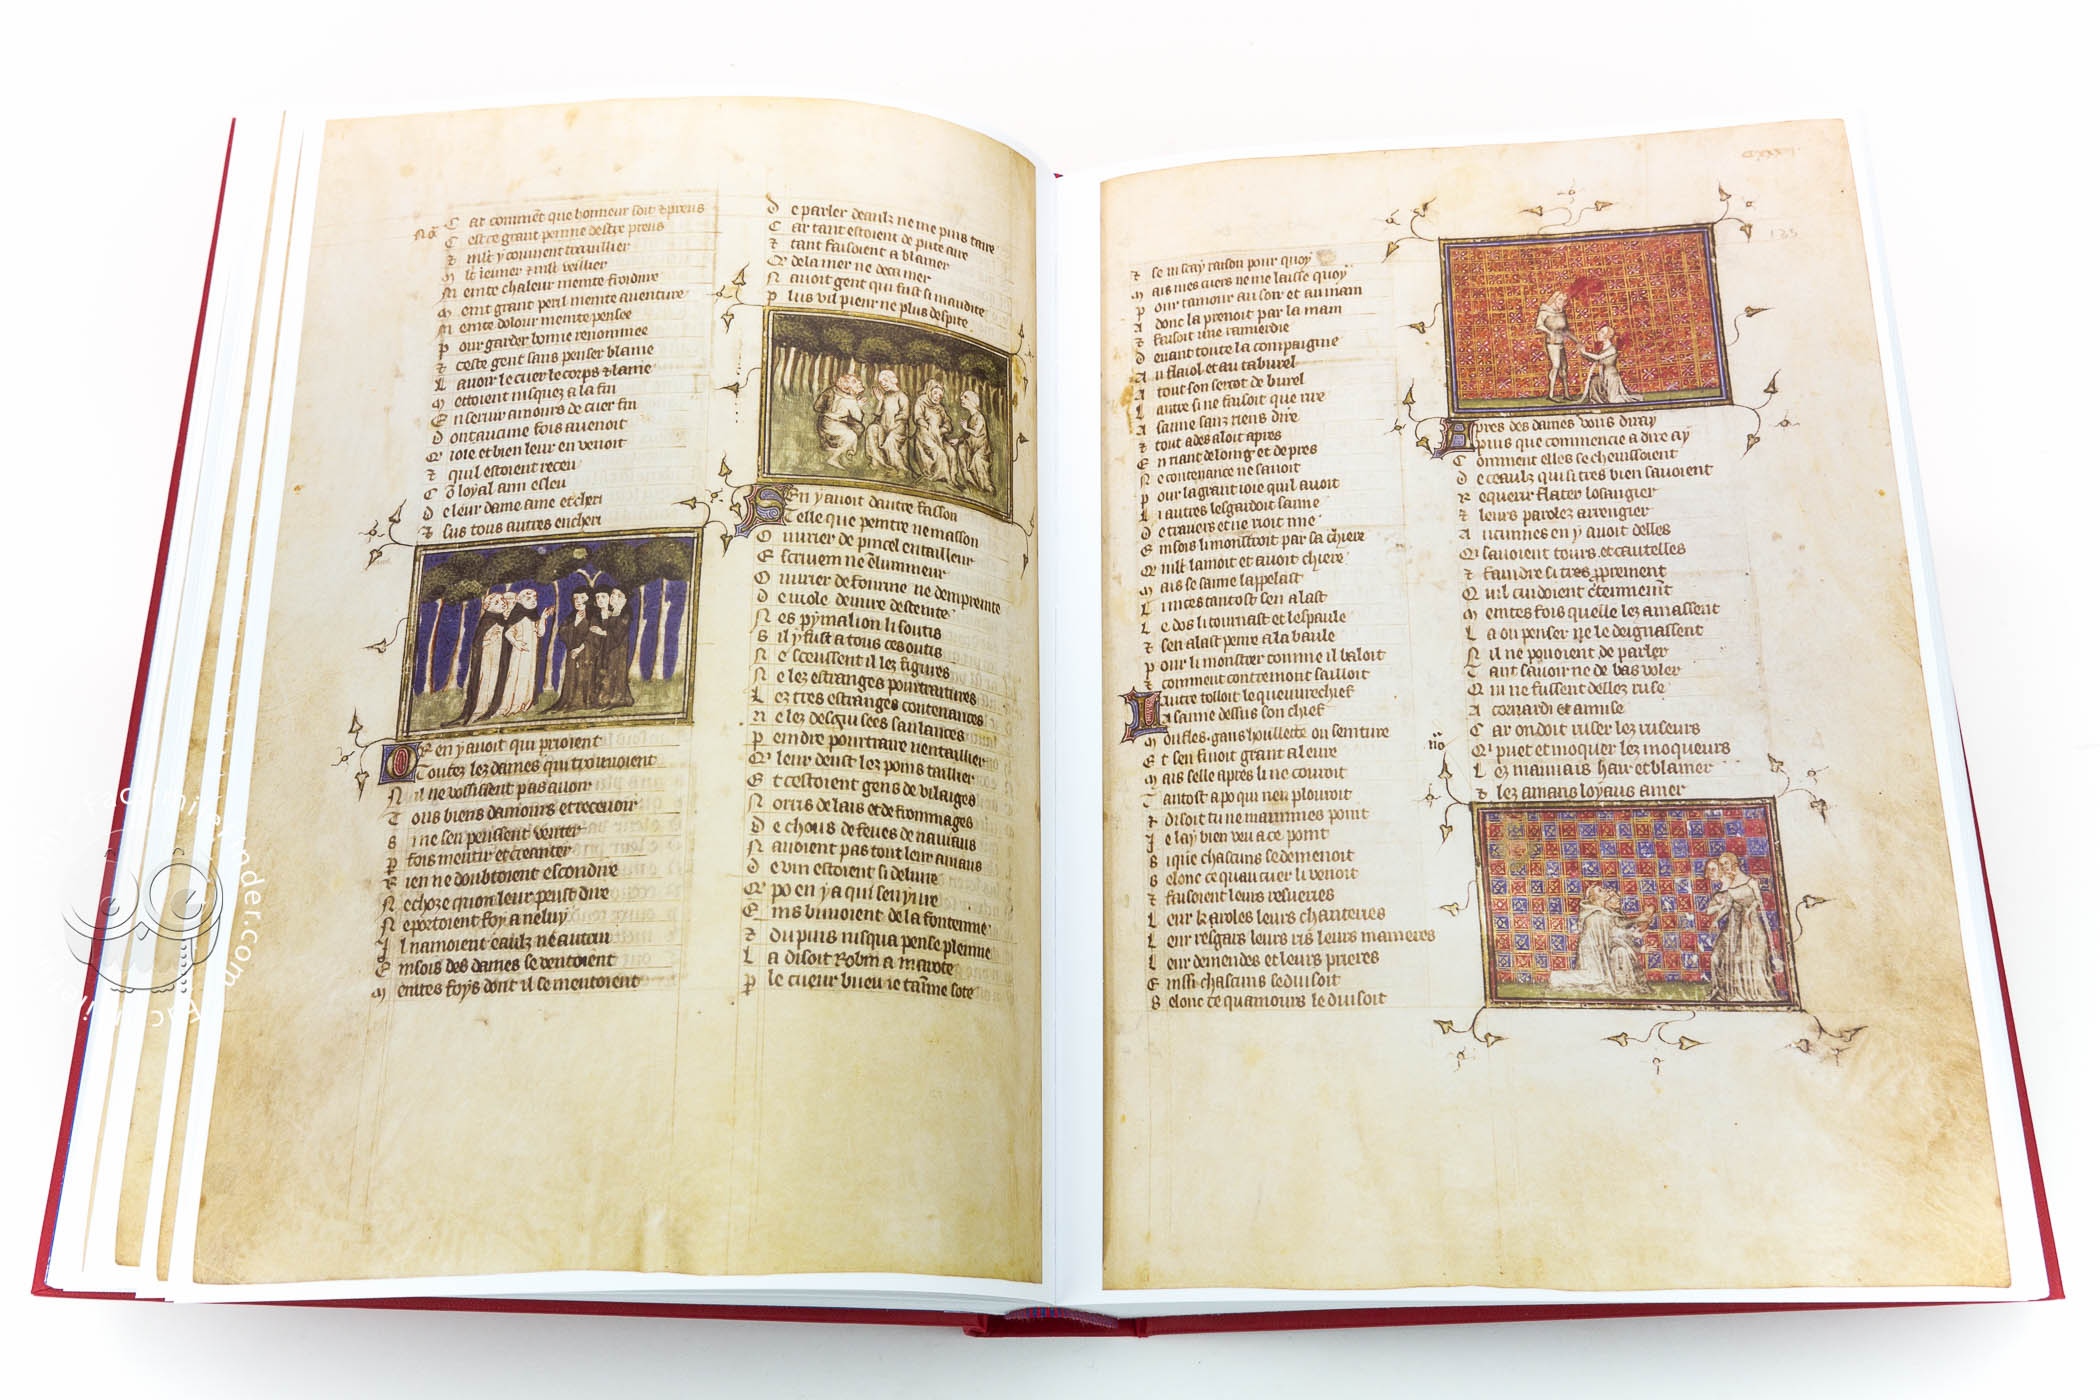 Car comment que honneur soit et preus
C est ce grant peinne destre preus
et mlt y convient traveillier
mlt jeuner et mlt veillier
Meinte chaleur meinte froidure
meint grant peril meinte aventure
Meinte dolour meinte pensee
pour garder bonne renommee
et ceste gent sans penser blame
Lavoir le cuer le corps et lame
mettoient jusquez a la fin
En servir amours de cuer fin
Dont aucune fois avenoit
Que joie et bien leur en venoit
et quil estoient receu
Com loyal ami esleu
De leur dame ame et cheri
et sus tous autres encheri
Or en y avoit qui prioient
Toutez lez dames qui trouvoient
Nil ne vossissent pas avoir
Tous biens damours et recevoir
Si ne sen peussent venter
p fois mentir et creanter
Rien ne doubtoient escondire
Ne choze quon leur peust dire
Ne portoient foy a neluy
Il namoient eaulz ne autrui
Einsois des dames se ventoient
meintes foys dont il se mentoient
De parler deaulz ne me puis taire
Car tant estoient de pute aire
et tant faisoient a blamer
Que dela mer ne deca mer
Navoit gent qui fust si maudite
plus vil pieur ne plus despite
Sen y avoit dautre fasson
Telle que peintre ne masson
Ouvrier de pincel entailleur
Escrivein ne enlumineur
Ouvrier de fourme ne dempreinte
De viole de vuire desteinte
Nes pymalion li soutis
Sil y fust a tous ces outis
Ne sceussent il lez figures
Ne lez estranges pourtraitures
Lez tres estranges contenances
ne lez desguisees sanlances
peindre pourtraire nentaillier
Qui leur deust lez poins taillier
Et cestoient gens de vilaiges
Norris de lais et de frommages
De chous de feves de naviaus
Navoient pas tout leur aviaus
De vin estoient si delivre
Que po en y a qui senyvre
Eins buvoient de la fonteinne
et du puis jusqua pense pleinne
La disoit Robin a marote
par le cueur bieu je taimme sote
CXXXV
135
et se ni scay raison pour quoy
mais mes cuers ne me laisse quoy
pour tamour au soir et au main
A donc la prenoit par la main
et faisoit une ramierdie
Devant toute la compaignie
Au flaiol et au taburel
A tout son sercot de burel
Lautre si ne faisoit que rire
A sanne sanz riens dire
et tout ades aloit apres
En riant de loing et de pres
Ne contenance ne savoit
pour la grant joie quil avoit
Li autres lesgardoit sanne
De travers et ne rioit mie
Einsois li monstroit par sa chiere
Que mlt lamoit et avoit chiere
mais se sanne lappelast
Li inces tantost sen alast
Le dos li tournast et lespaule
et sen alast penre a la baule
pour li monstrer comme il baloit
et comment contremont sailloit
Lautre tolloit le queuvrechief
A sanne dessus son chief
Moufles gans houllette ou seinture
Et sen finoit grant aleure
mais selle apres li ne couroit
Tantost a po qui nen plouroit
et disoit tu ne maimmes point
Je lay bien veu a ce point
Si que chascuns se demenoit
Selonc ce quau cuer li venoit
et faisoient leurs resveries
Leur karoles leurs chanteries
Leur resgars leurs ris leurs manieres
Leur demendes et leurs prieres
Einssi chascuns se duisoit
Selonc ce quamours le duisoit
Apres des dames vous diray
puis que commencie a dire ay
Comment elles se chevissoient
De ceaulz qui si tres bien savoient
Requerir flater losangier
et leurs parolez arrengier
Aucunnes en y avoit delles
Qui savoient tours et cautelles
et faindre si tres proprement
Quil cuidoient certeinnement
meintes fois quelle lez amassent
La ou penser ne le deignassent
Nil ne pouoient de parler
Tant savoir ne de bas voler
Qui ne fussent dellez ruse
A cornardi et amuse
Car on doit ruser lez ruseurs
Qui puet et moquer lez moqueurs
Lez mauvais hair et blamer
et lez amans loyaus amer
Facsimilefinder.com